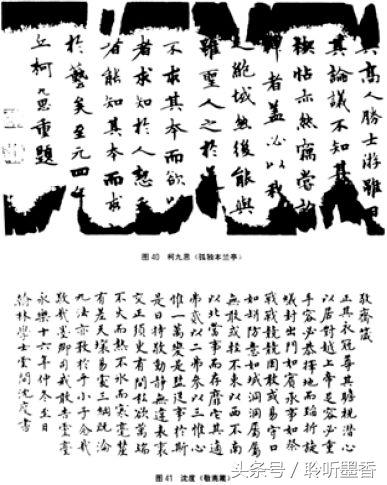 高人勝士游雖日
其論議不知其
禊帖亦然竊嘗
禪者蓋必以我
絕域然後能與
雖聖人之於
不求其本而欲以
者求知於人
有能知其本而求
於藝矣至元四年
丘柯九思重題
图 40 柯九思《孤独本兰亭》
敬齋箴
正其衣冠尊其瞻視潛心
以居對越上帝足容必重
手容必恭擇地而蹈折旋
蟻封出門如賓承事如祭
戰戰兢兢罔敢或易守口
如瓶防意如城洞洞屬屬
無敢或輕不東以西不南
以北當事而存靡它其適
弗貳以二弗參以三惟心
惟一萬變是監從事於斯
是曰持敬動靜無違表裏
交正須臾有間私欲萬端
不火而熱不冰而寒毫釐
有差天壤易處三綱既淪
九法亦斁於乎小子念哉
敬哉墨卿司戒敢告靈臺
永樂十六年仲冬至日
翰林學士雲間沈度書
图 41 沈度《敬斋箴》
头条号 / 聆听墨香